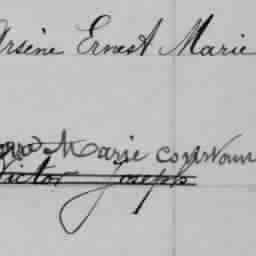 Arsène Ernest Marie
Marie
Victor Joseph